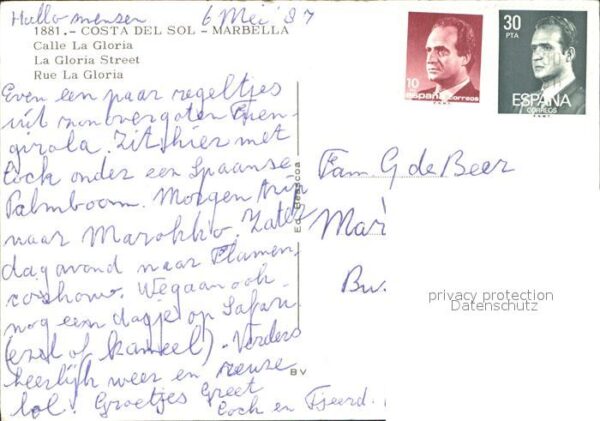 Hullo mensen 6 Mei 87
1881.- COSTA DEL SOL - MARBELLA
Calle La Gloria
La Gloria Street
Rue La Gloria
Even een paar regeltjes
uit zonovergoten Fuen-
girola. Zit hier met
Cock onder een Spaanse
Palmboom. Morgen
naar Marokko. Zater
dagavond naar Flamen-
coshow. We gaan ook
nog een dagje op Safari
(ezel of kameel). Verders
heerlijk weer en reuze
lol. Groetjes Greet
Cock en Tjeerd.
Ed. Beascoa
BV
10
españa correos
30
PTA
ESPAÑA
CORREOS
Fam. G de Beer
Mar
Bw.
privacy protection
Datenschutz